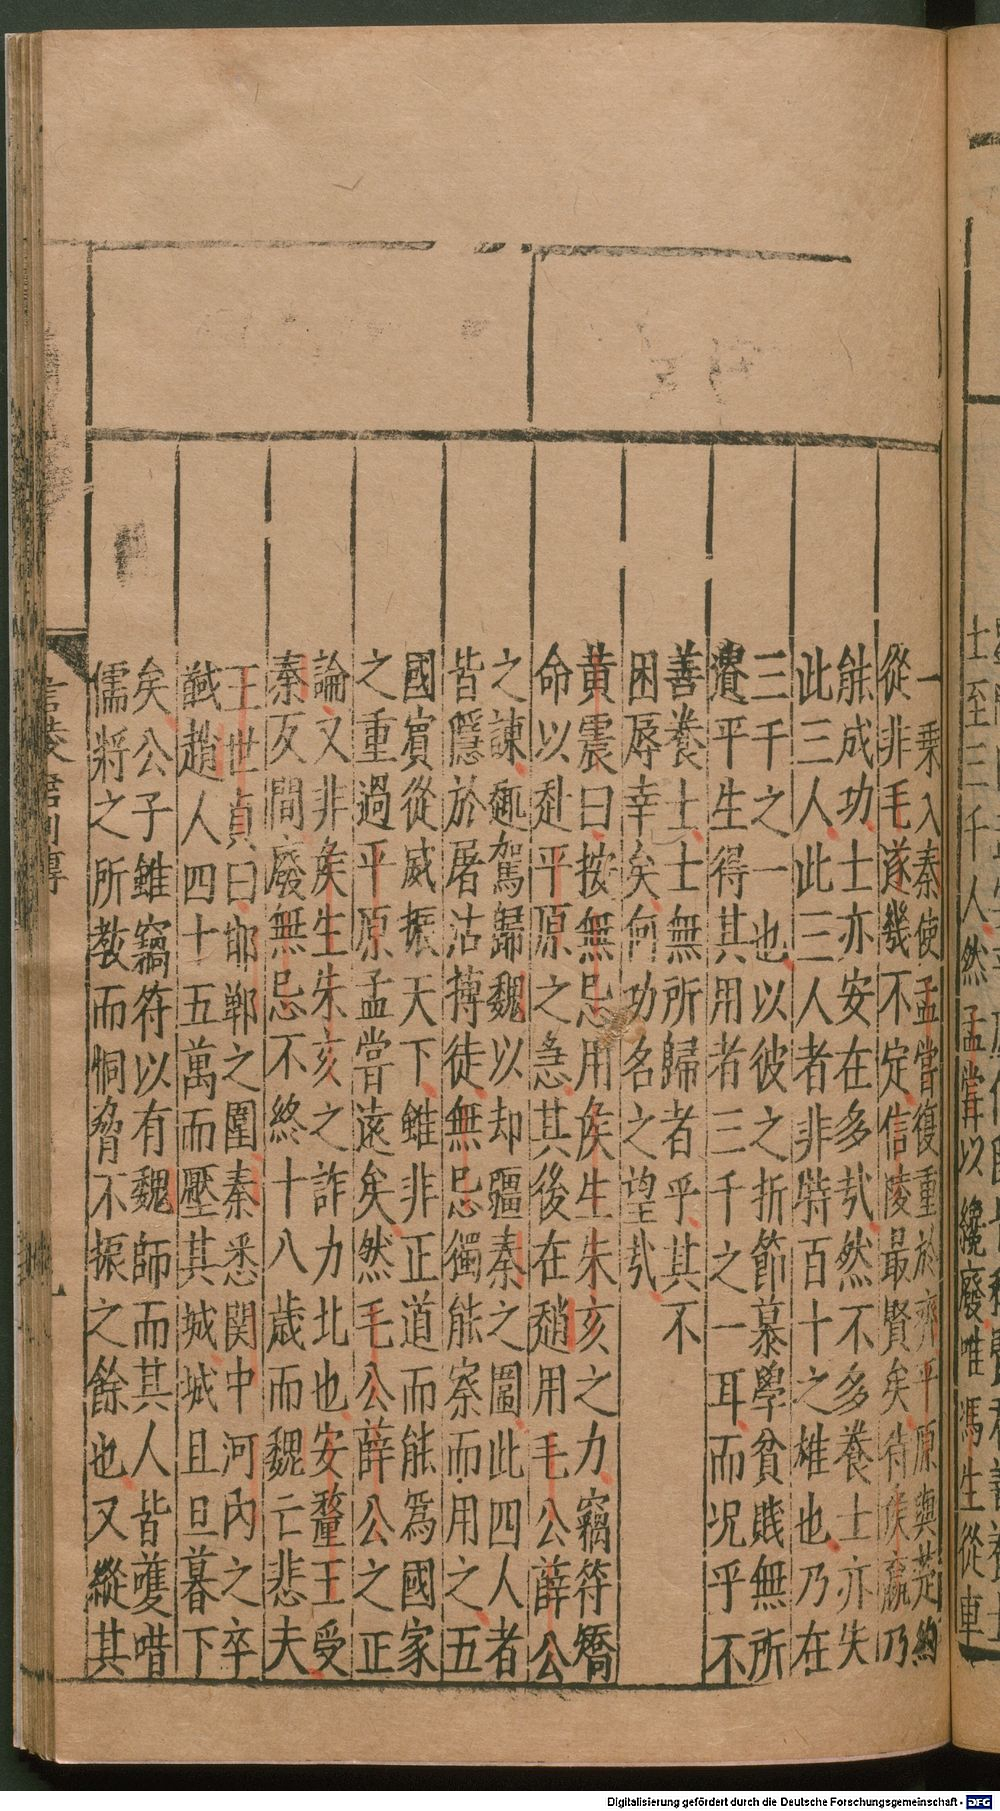 一乗入秦使孟嘗復重於齊平原與楚約
從非毛遂幾不定信陵最賢矣待侯嬴乃
能成功士亦安在多㢤然不多養士亦失
此三人此三人者非特百十之雄也乃在
三千之一也以彼之折節慕學貧賤無所
遺平生得其用者三千之一耳而况乎不
善養士士無所歸者乎其不
困辱幸矣何功名之望㢤
黄震曰按無忌用侯生朱亥之力竊符矯
命以赴平原之急其後在趙用毛公薛公
之諫趣駕歸魏以却疆秦之圖此四人者
皆隱於屠沽搏徒無忌獨能察而用之五
國賔從威振天下雖非正道而能爲國家
之重過平原孟嘗遠矣然毛公薛公之正
論又非侯生朱亥之詐力北也安釐王受
秦反間廢無忌不終十八歳而魏亡悲夫
王世貞曰邯鄲之圍秦悉関中河内之卒
馘趙人四十五萬而壓其城城且旦暮下
矣公子雖竊符以有魏師而其人皆䕶唶
儒將之所教而恫脅不振之餘也又縱其
言陵君列傳
士至三千人然孟嘗以纔廢唯馮生從車
Digitalisierung gefördert durch die Deutsche Forschungsgemeinschaft - DFG